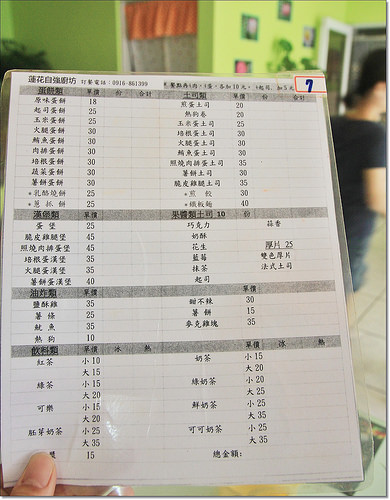 蓮花自強廚坊 訂餐電話：0916-861399
7
蛋餅類 單價 份 合計 土司類 單價 份 合計
原味蛋餅 18 煎蛋土司 20
起司蛋餅 25 熱狗卷 20
玉米蛋餅 25 玉米蛋土司 25
火腿蛋餅 30 培根蛋土司 30
鮪魚蛋餅 30 火腿蛋土司 30
肉排蛋餅 30 鮪魚蛋土司 30
培根蛋餅 30 照燒肉排蛋土司 35
蔬菜蛋餅 30 薯餅土司 30
薯餅蛋餅 30 脆皮雞腿土司 35
*乳酪燒餅 25 *煎餃 30
*蔥抓餅 25 *鐵板麵 40
漢堡類 單價 果醬類土司 10 份
蛋堡 25 巧克力 蒜香
脆皮雞腿堡 45 奶酥
照燒肉排蛋堡 45 花生 厚片 25
培根蛋漢堡 35 藍莓 雙色厚片
火腿蛋漢堡 35 抹茶 法式土司
薯餅蛋漢堡 40 起司
油炸類 單價 單價
鹽酥雞 35 甜不辣 30
薯條 25 薯餅 15
魷魚 35 麥克雞塊 35
熱狗 10
飲料類 單價 冰 熱 單價 冰 熱
紅茶 小10 奶茶 小15
大15 大20
綠茶 小15 綠奶茶 小20
大20 大25
可樂 小15 鮮奶茶 小25
大20 大35
胚芽奶茶 小25 可可奶茶 小25
大35 大35
15 總金額：